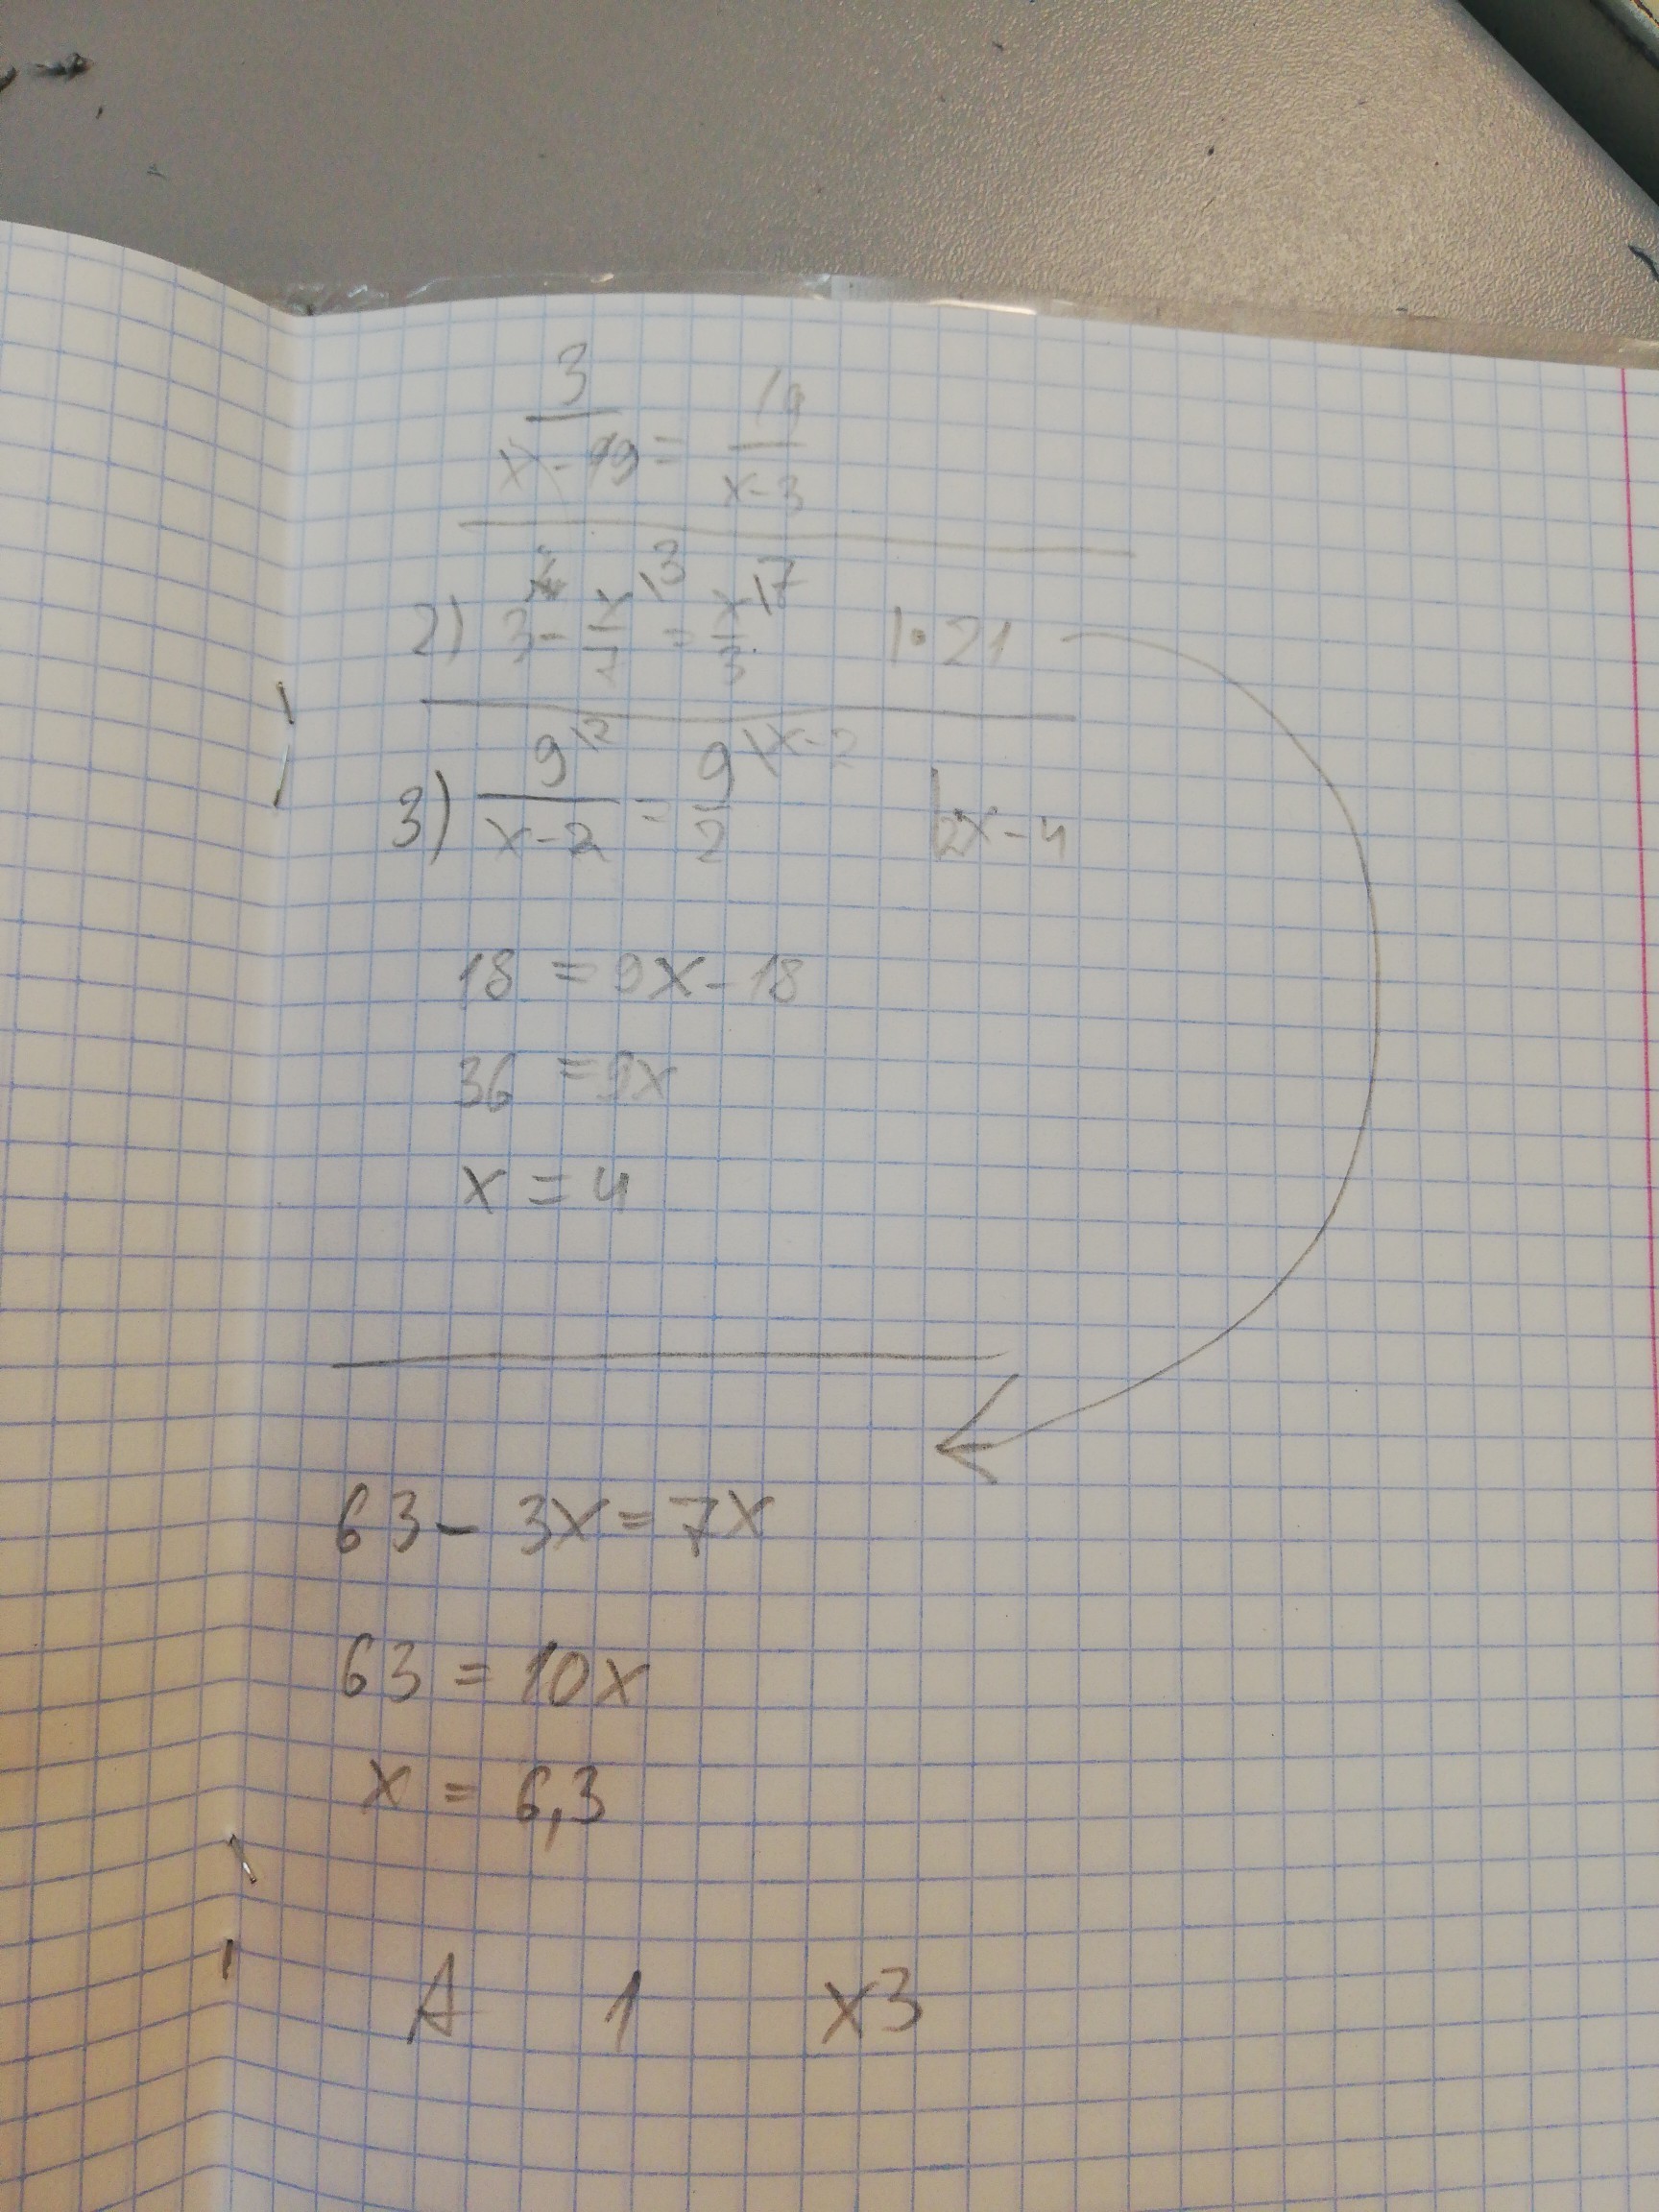 3
x-19 = 19
x-3
2) 3 - x/7 \3 = x/3 \7 |·21
3) 9\2 / x-2 = 9\x-2 / 2 |2x-4
18 = 9x-18
36 = 9x
x = 4
63 - 3x = 7x
63 = 10x
x = 6,3
A 1 x3